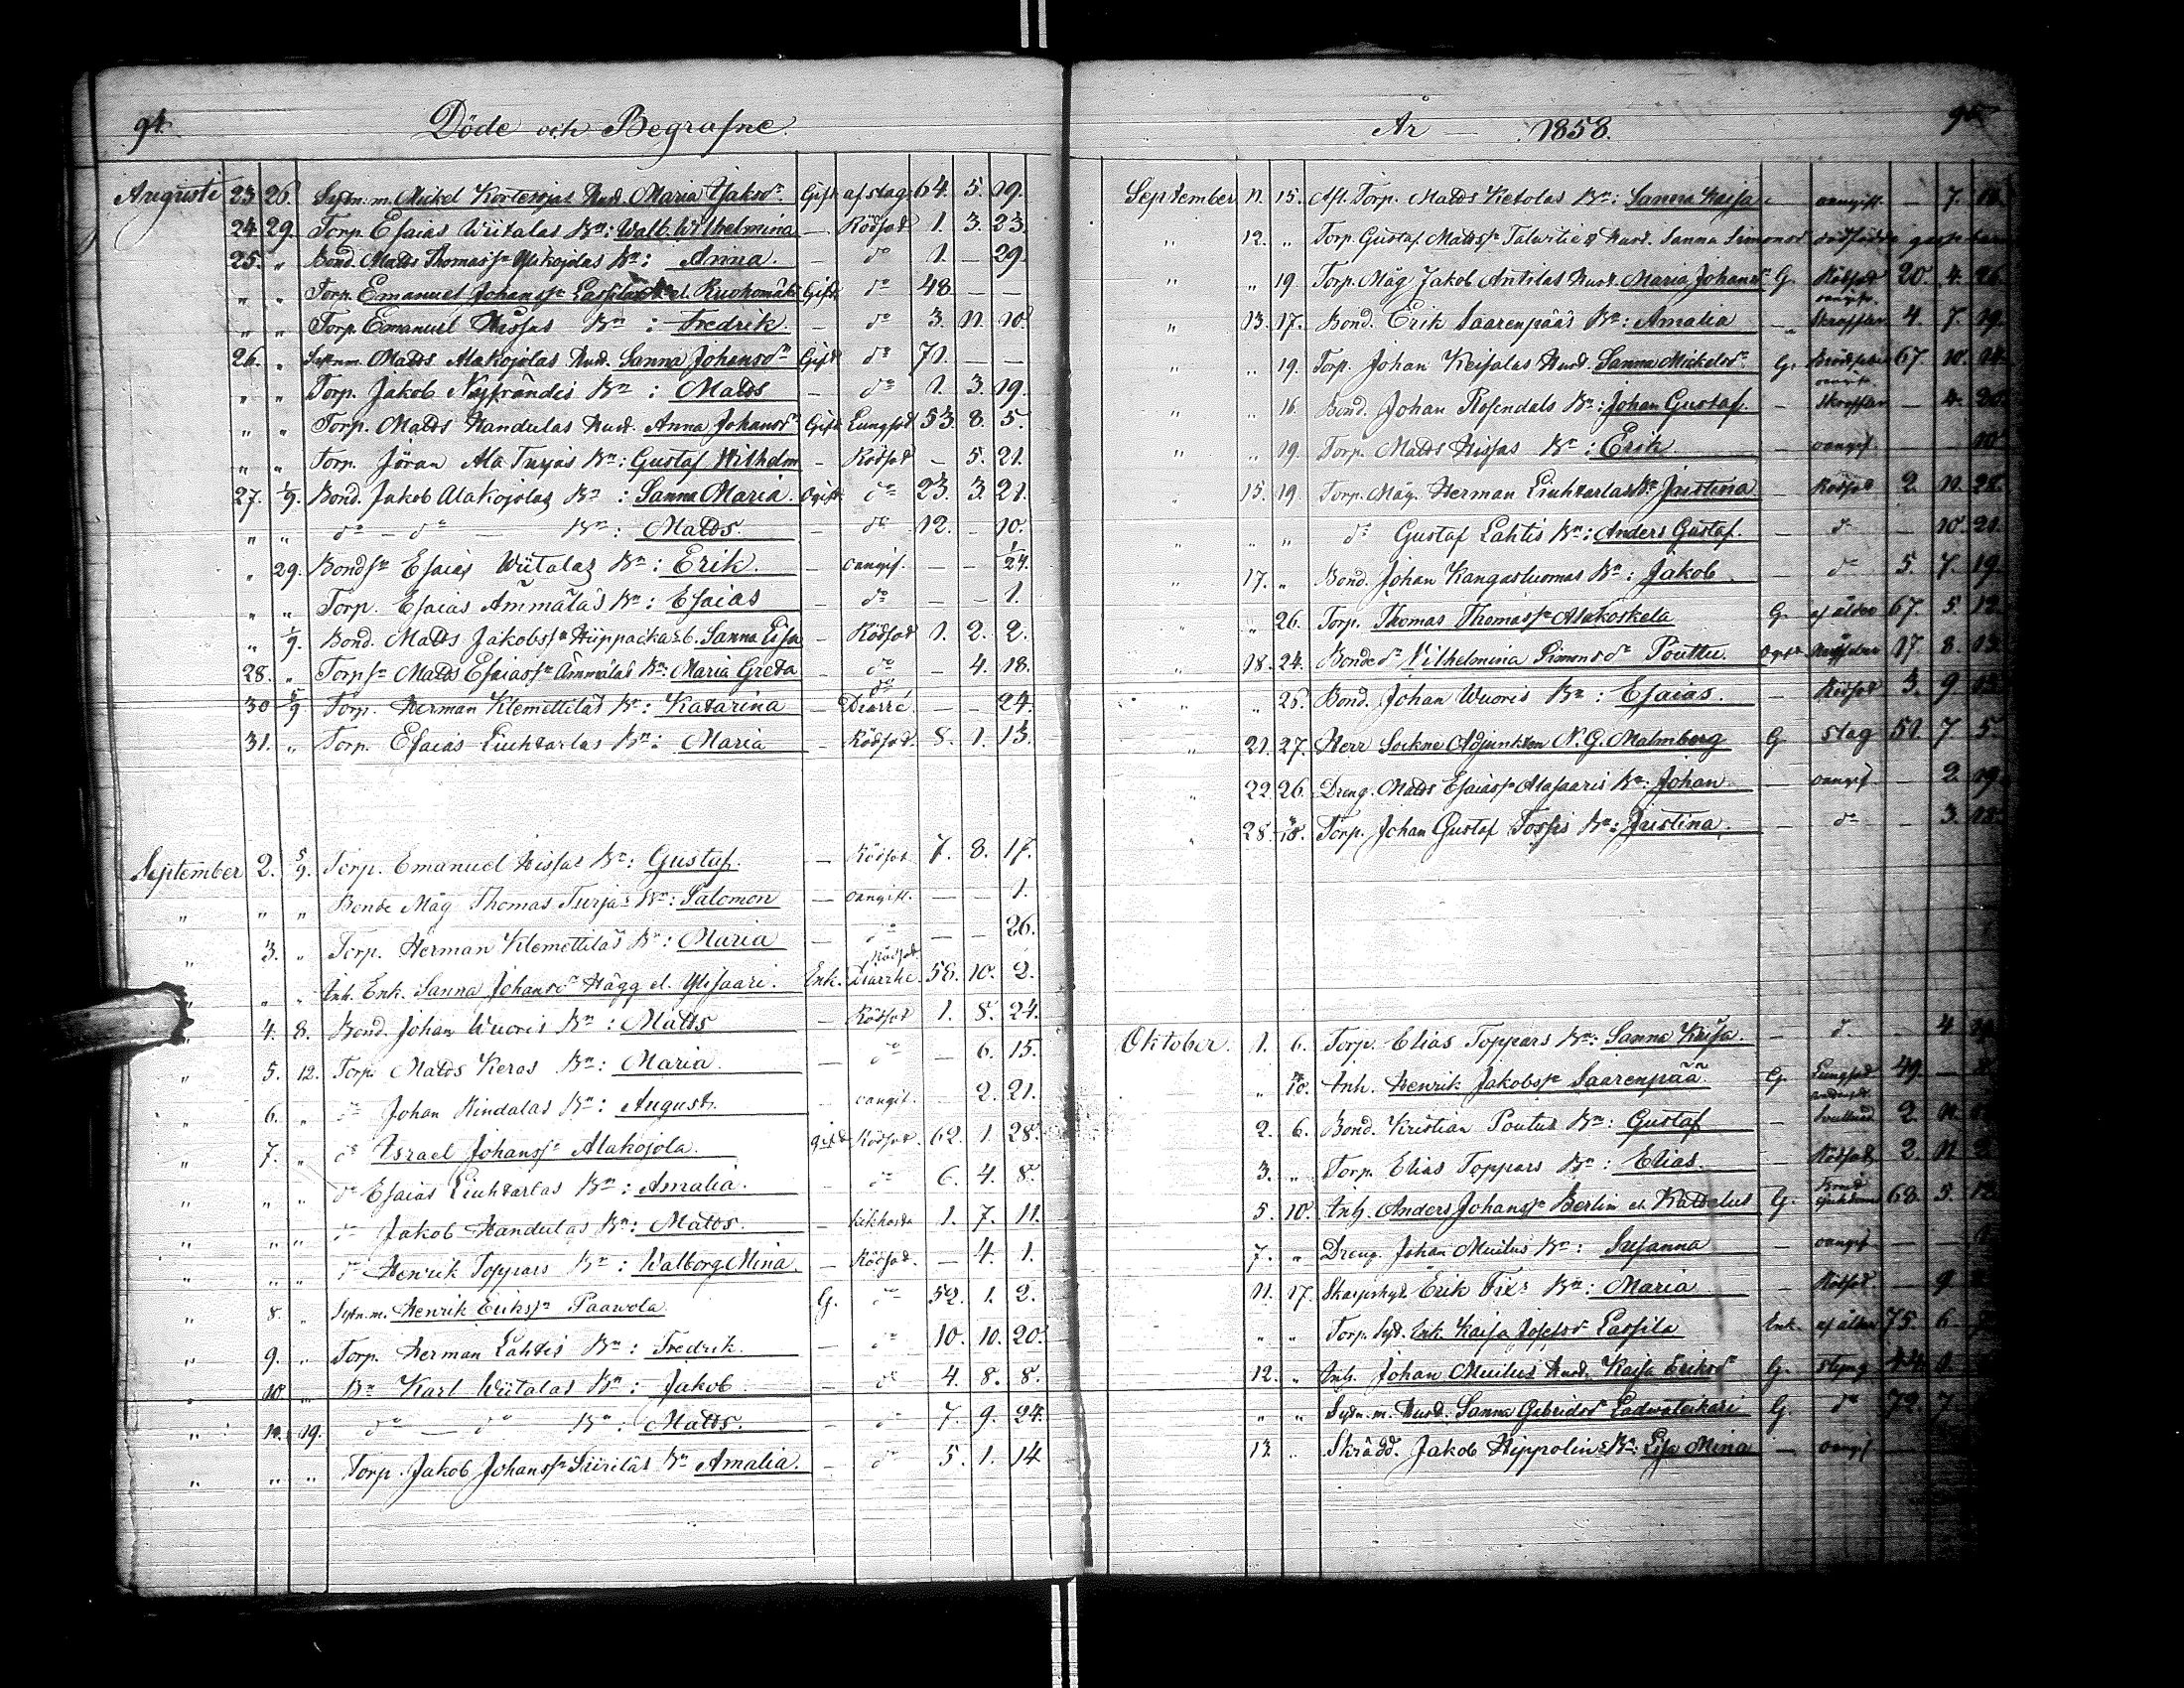 94. Döde och Begrafne.
Augusti 23 26. Sytn. m. Mickel Kortesojas Hust. Maria Isaksdr. Gift af slag 64. 5. 19.
24. 29. Torp. Esaias Wiitalas Bn: Walb. Wilhelmina — Rödsot 1. 3. 23.
25. „ Bond. Matts Thomass. Alakojolas Bn: Anna. — do 1. — 29.
„ „ Torp. Emanuel Johanss. Lassila el. Ruohomäki Gift do 48 — —
„ „ Torp. Emanuel Hissas Bn: Fredrik. — do 3. 11. 10.
26. „ Sytnm. Matts Alakojolas Hust. Sanna Johansdr Gift do 71. — —
„ „ Torp. Jakob Nyfrändis Bn: Matts — do 1. 3. 19.
„ „ Torp. Matts Handulas Hust. Anna Johansdr Gift Lungsot 53. 8. 5.
„ „ Torp. Jöran Ala Turjas Bn: Gustaf Wilhelm — Rödsot — 5. 21.
27. 1/9. Bond. Jakob Alakojolas Bn: Sanna Maria. Ogift do 23. 3. 21.
„ „ do — do — Bn: Matts. — do 12. — 10.
„ 29. Bondsn Esaias Wiitalas Bn: Erik. — oangif. — — 1/24.
„ „ Torp. Esaias Ämmäläs Bn: Esaias — do — — 1.
„ 1/9. Bond. Matts Jakobss. Hiippackas b. Sanna Lisa — Rödsot 1. 2. 2.
28. „ Torpsn Matts Esaiass. Ämmäläs Bn: Maria Greta — do — 4. 18.
30 5/9 Torp. Herman Klemettiläs Bn: Katarina — do Diarré. — — 24.
31. „ Torp. Esaias Liuhtarlas Bn: Maria — Rödsot. 8. 1. 13.
September 2. 5/9. Torp. Emanuel Hissas Bn: Gustaf. — Rödsot 7. 8. 17.
„ „ „ Bonde Måg Thomas Turjas Bn: Salomon — oangift. — — 1.
„ 3. „ Torp. Herman Klemettiläs Bn: Maria — do — — 26.
„ „ „ Inh. Enk. Sanna Johansdr Hägg el. Ylisaari. Enk. Rödsot Diarrhé. 58. 10. 2.
„ 4. 8. Bond. Johan Wuoris Bn: Matts — Rödsot 1. 8. 24.
„ 5. 12. Torp. Matts Keros Bn: Maria. — do — 6. 15.
„ 6. „ do Johan Hindalas Bn: August. — oangif. — 2. 21.
„ 7. „ do Israel Johanss. Alakojola. gift Rödsot. 62. 1. 28.
„ „ „ do Esaias Liuhtarlas Bn: Amalia. — do 6. 4. 8.
„ „ „ do Jakob Handulas Bn: Matts. — kikhosta 1. 7. 11.
„ „ „ do Henrik Toppars Bn: Walborg Mina. — Rödsot. — 4. 1.
„ 8. „ Sytn. m. Henrik Erikss. Paavola. G. do 52. 1. 2.
„ 9. „ Torp. Herman Lahtis Bn: Fredrik. — do 10. 10. 20.
„ 10. „ Bn Karl Wiitalas Bn: Jakob — do 4. 8. 8.
„ 12. 19. do — do Bn: Matts. — do 7. 9. 24.
„ „ „ Torp. Jakob Johanss. Siiriläs Bn Amalia. — do 5. 1. 14
År — 1858. 95
September 11. 15. Afl. Torp. Matts Ketolas Bn: Sanna Kaisa — oangift. — 7.
„ 12. „ Torp. Gustaf Mattss. Talwities Hust. Sanna Simonsd. dödfödde
„ „ 19. Torp. Måg Jakob Antilas Hust. Maria Johansdr G. Rödsot 20. 4. 26.
„ 13. 17. Bond. Erik Saarenpääs Bn: Amalia — oangift. Skroflar 4. 7. 19.
„ „ 19. Torp. Johan Keisalas Hust. Sanna Mickelsdr. G. 67. 10.
„ „ 16. Bond. Johan Rosendals Bn: Johan Gustaf. — oangift. Skroflar — 4. 20.
„ „ 19. Torp. Matts Hissas Bn: Erik — oangif. 10.
„ 15. 19 Torp. Måg. Herman Liuhtarlas Bn Justina — Rödsot 2. 11.
„ „ „ do Gustaf Lahtis Bn: Anders Gustaf. — do — 10. 21.
„ 17. „ Bond. Johan Kangasluomas Bn: Jakob. — do 5. 7. 19.
„ „ 26. Torp. Thomas Thomass. Alakoskela G. af ålder 67. 5. 12.
„ 18. 24. Bonde dr Wilhelmina Simonsdr Pouttu. Ogift 17. 8. 13.
„ „ 26. Bond. Johan Wuoris Bn: Esaias. — Rödsot 3. 9
„ 21. 27. Herr Sockne Adjunkten N. G. Malmberg G. slag 51. 7. 5.
„ 22. 26. Dreng. Matts Esaiass. Alasaaris Bn: Johan — oangif. — 2. 19.
„ 28. Torp. Johan Gustaf Bn: Justina. — do — 3. 18.
Oktober. 1. 6. Torp. Elias Toppars Bn: Sanna Kaisa. — do — 4
„ 10. Inh. Henrik Jakobss. Saarenpää G. Lungsot 49. —
2. 6. Bond. Kristian Poutus Bn: Gustaf — 2. 11.
3. „ Torp. Elias Toppars Bn: Elias. — Rödsot 2. 11.
5. 10. Inh. Anders Johanss. Berlin el. Kattelus G. 68. 5. 12.
7. „ Dreng. Johan Muilus Bn: Susanna — oangif — —
11. 17. Skarpskyt. Erik Fix's Bn: Maria — Rödsot — 9
„ „ Torp. Syt. Enk. Kaisa Josefsd. Lassila Enk. af ålder 75 6
12. „ Inh. Johan Muilus Hust. Kaisa Eriksdr G. styng 44.
„ „ Sytn. m. Hust. Sanna Gabrielsd. G. do 72. 7
13. „ Skrädd. Jakob Hippolins Bn: Lisa Mina — oangif